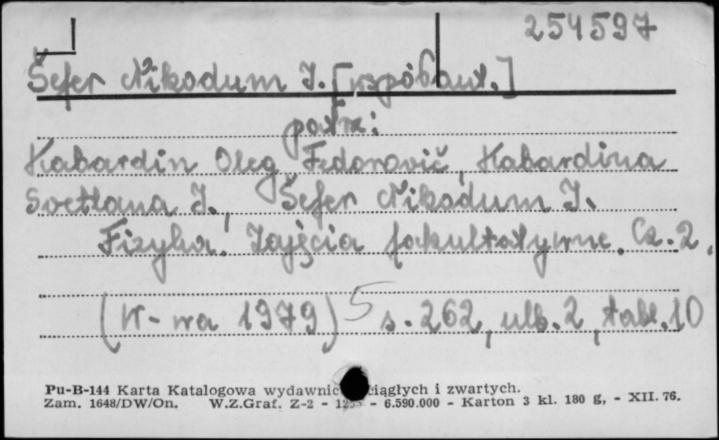 254597
Šefer Nikodum I. [współaut.]
patrz:
Kabardin Oleg Fedorovič, Kabardina
Svetlana I., Šefer Nikodum I.
Fizyka. Zajęcia fakultatywne. Cz. 2.
(W-wa 1979) 5 s. 262, ulb. 2, tabl. 10
Pu-B-144 Karta Katalogowa wydawnic ciągłych i zwartych.
Zam. 1648/DW/On. W.Z.Graf. Z-2 - - 6.590.000 - Karton 3 kl. 180 g, - XII. 76.